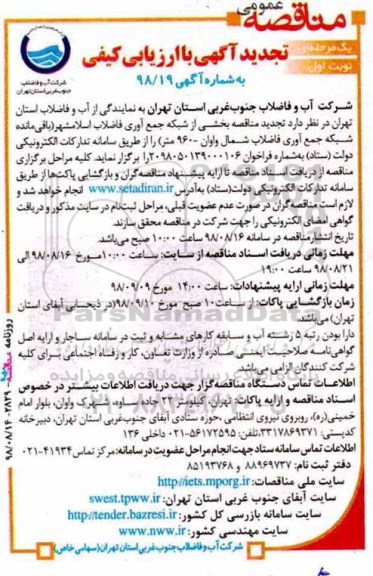 مناقصه عمومی
یک مرحله‌ای
نوبت اول
تجدید آگهی با ارزیابی کیفی
به شماره آگهی ۹۸/۱۹
شرکت آب و فاضلاب
جنوب‌غربی استان تهران
شرکت آب و فاضلاب جنوب‌غربی استان تهران به نمایندگی از آب و فاضلاب استان
تهران در نظر دارد تجدید مناقصه بخشی از شبکه جمع آوری فاضلاب اسلامشهر(باقی‌مانده
شبکه جمع آوری فاضلاب شمال واوان ۹۶۰۰ متر) را از طریق سامانه تدارکات الکترونیکی
دولت (ستاد) به‌شماره فراخوان ۲۰۹۸۰۵۰۱۳۹۰۰۰۱۰۶را برگزار نماید. کلیه مراحل برگزاری
مناقصه از دریافت اسناد مناقصه تا ارایه پیشنهاد مناقصه‌گران و بازگشایی پاکت‌ها از طریق
سامانه تدارکات الکترونیکی دولت(ستاد) به‌آدرس www.setadiran.ir انجام خواهد شد و
لازم است مناقصه‌گران در صورت عدم عضویت قبلی، مراحل ثبت‌نام در سایت مذکور و دریافت
گواهی امضای الکترونیکی را جهت شرکت در مناقصه محقق سازند.
تاریخ انتشارمناقصه در سامانه ۹۸/۰۸/۱۶ ساعت ۱۰:۰۰ صبح می‌باشد.
مهلت زمانی دریافت اسناد مناقصه از سایت: ساعت ۱۰:۰۰مورخ ۹۸/۰۸/۱۶ الی
۹۸/۰۸/۲۱ ساعت ۱۹:۰۰
مهلت زمانی ارایه پیشنهادات: ساعت ۱۴:۰۰ مورخ ۹۸/۰۹/۰۹
زمان بازگشایی پاکات: از ساعت ۱۰ صبح مورخ ۹۸/۰۹/۱۰(در ذیحسابی آبفای استان
تهران) می‌باشد.
دارا بودن رتبه ۵ رشته آب و سابقه کارهای مشابه و ثبت در سامانه ساجار و ارایه اصل
گواهی‌نامه صلاحیت ایمنی صادره از وزارت تعاون، کار و رفاه اجتماعی برای کلیه
شرکت کنندگان الزامی می‌باشد.
اطلاعات تماس دستگاه مناقصه‌گزار جهت دریافت اطلاعات بیشتر در خصوص
اسناد مناقصه و ارایه پاکات: تهران، کیلومتر ۲۳ جاده ساوه، شهرک واوان، بلوار امام
خمینی(ره)، روبروی نیروی انتظامی، حوزه ستادی آبفای جنوب‌غربی استان تهران، دبیرخانه
کدپستی: ۳۳۱۷۸۶۹۳۷۱،تلفن: ۵۶۱۷۲۵۹۵-۰۲۱ داخلی ۱۳۶
اطلاعات تماس سامانه ستاد جهت انجام مراحل عضویت در سامانه: مرکز تماس ۴۱۹۳۴-۰۲۱
دفتر ثبت نام: ۸۸۹۶۹۷۳۷ و ۸۵۱۹۳۷۶۸
سایت ملی مناقصات: http://iets.mporg.ir
سایت آبفای جنوب غربی استان تهران: swest.tpww.ir
سایت سامانه بازرسی کل کشور: http://tender.bazresi.ir
سایت مهندسی کشور: www.nww.ir
شرکت آب و فاضلاب جنوب غربی استان تهران(سهامی خاص)
ParsNamadData